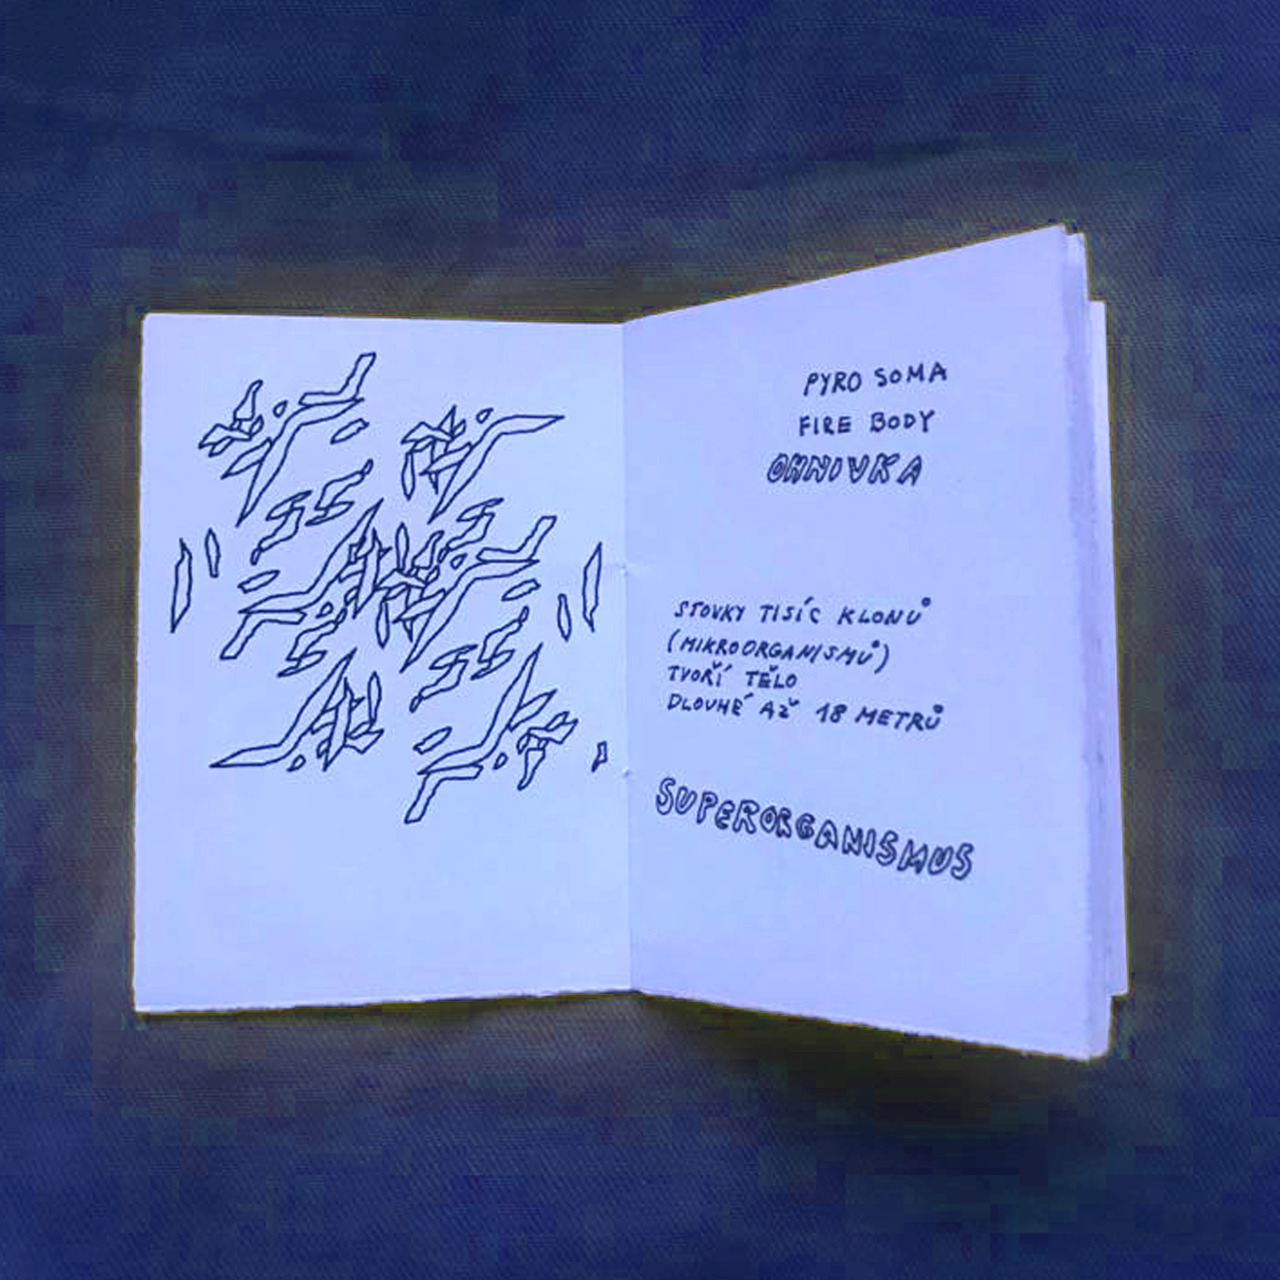 PYRO SOMA
FIRE BODY
OHNIVKA
STOVKY TISÍC KLONŮ
(MIKROORGANISMŮ)
TVOŘÍ TĚLO
DLOUHÉ AŽ 18 METRŮ
SUPERORGANISMUS